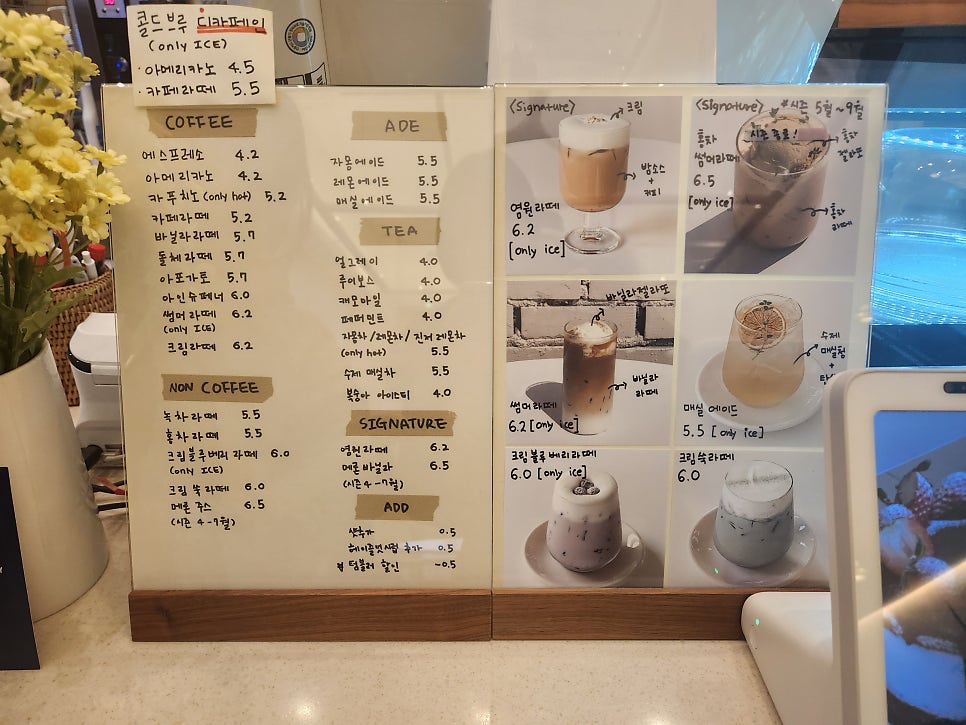 콜드브루 디카페인
(only ICE)
· 아메리카노 4.5
· 카페라떼 5.5
COFFEE
에스프레소 4.2
아메리카노 4.2
카푸치노 (only hot) 5.2
카페라떼 5.2
바닐라라떼 5.7
돌체라떼 5.7
아포가토 5.7
아인슈페너 6.0
썸머라떼 6.2
(only ICE)
크림라떼 6.2
NON COFFEE
녹차라떼 5.5
홍차라떼 5.5
크림블루베리라떼 6.0
(only ICE)
크림 쑥라떼 6.0
메론 주스 6.5
(시즌 4-7월)
ADE
자몽에이드 5.5
레몬에이드 5.5
매실에이드 5.5
TEA
얼그레이 4.0
루이보스 4.0
캐모마일 4.0
페퍼민트 4.0
자몽차/레몬차/진저레몬차
(only hot) 5.5
수제 매실차 5.5
복숭아 아이스티 4.0
SIGNATURE
영원라떼 6.2
메론바닐라 6.5
(시즌 4-7월)
ADD
샷추가 0.5
헤이즐넛시럽 추가 0.5
텀블러 할인 -0.5
<Signature>
크림
밤소스
+
커피
영원라떼
6.2
[only ice]
<Signature> 시즌 5월~9월
시즌 종료!
홍차
썸머라떼
6.5
[only ice]
홍차
젤라또
홍차
라떼
바닐라젤라또
바닐라
라떼
썸머라떼
6.2 [only ice]
수제
매실청
+
매실 에이드
5.5 [only ice]
크림블루베리라떼
6.0 [only ice]
크림쑥라떼
6.0